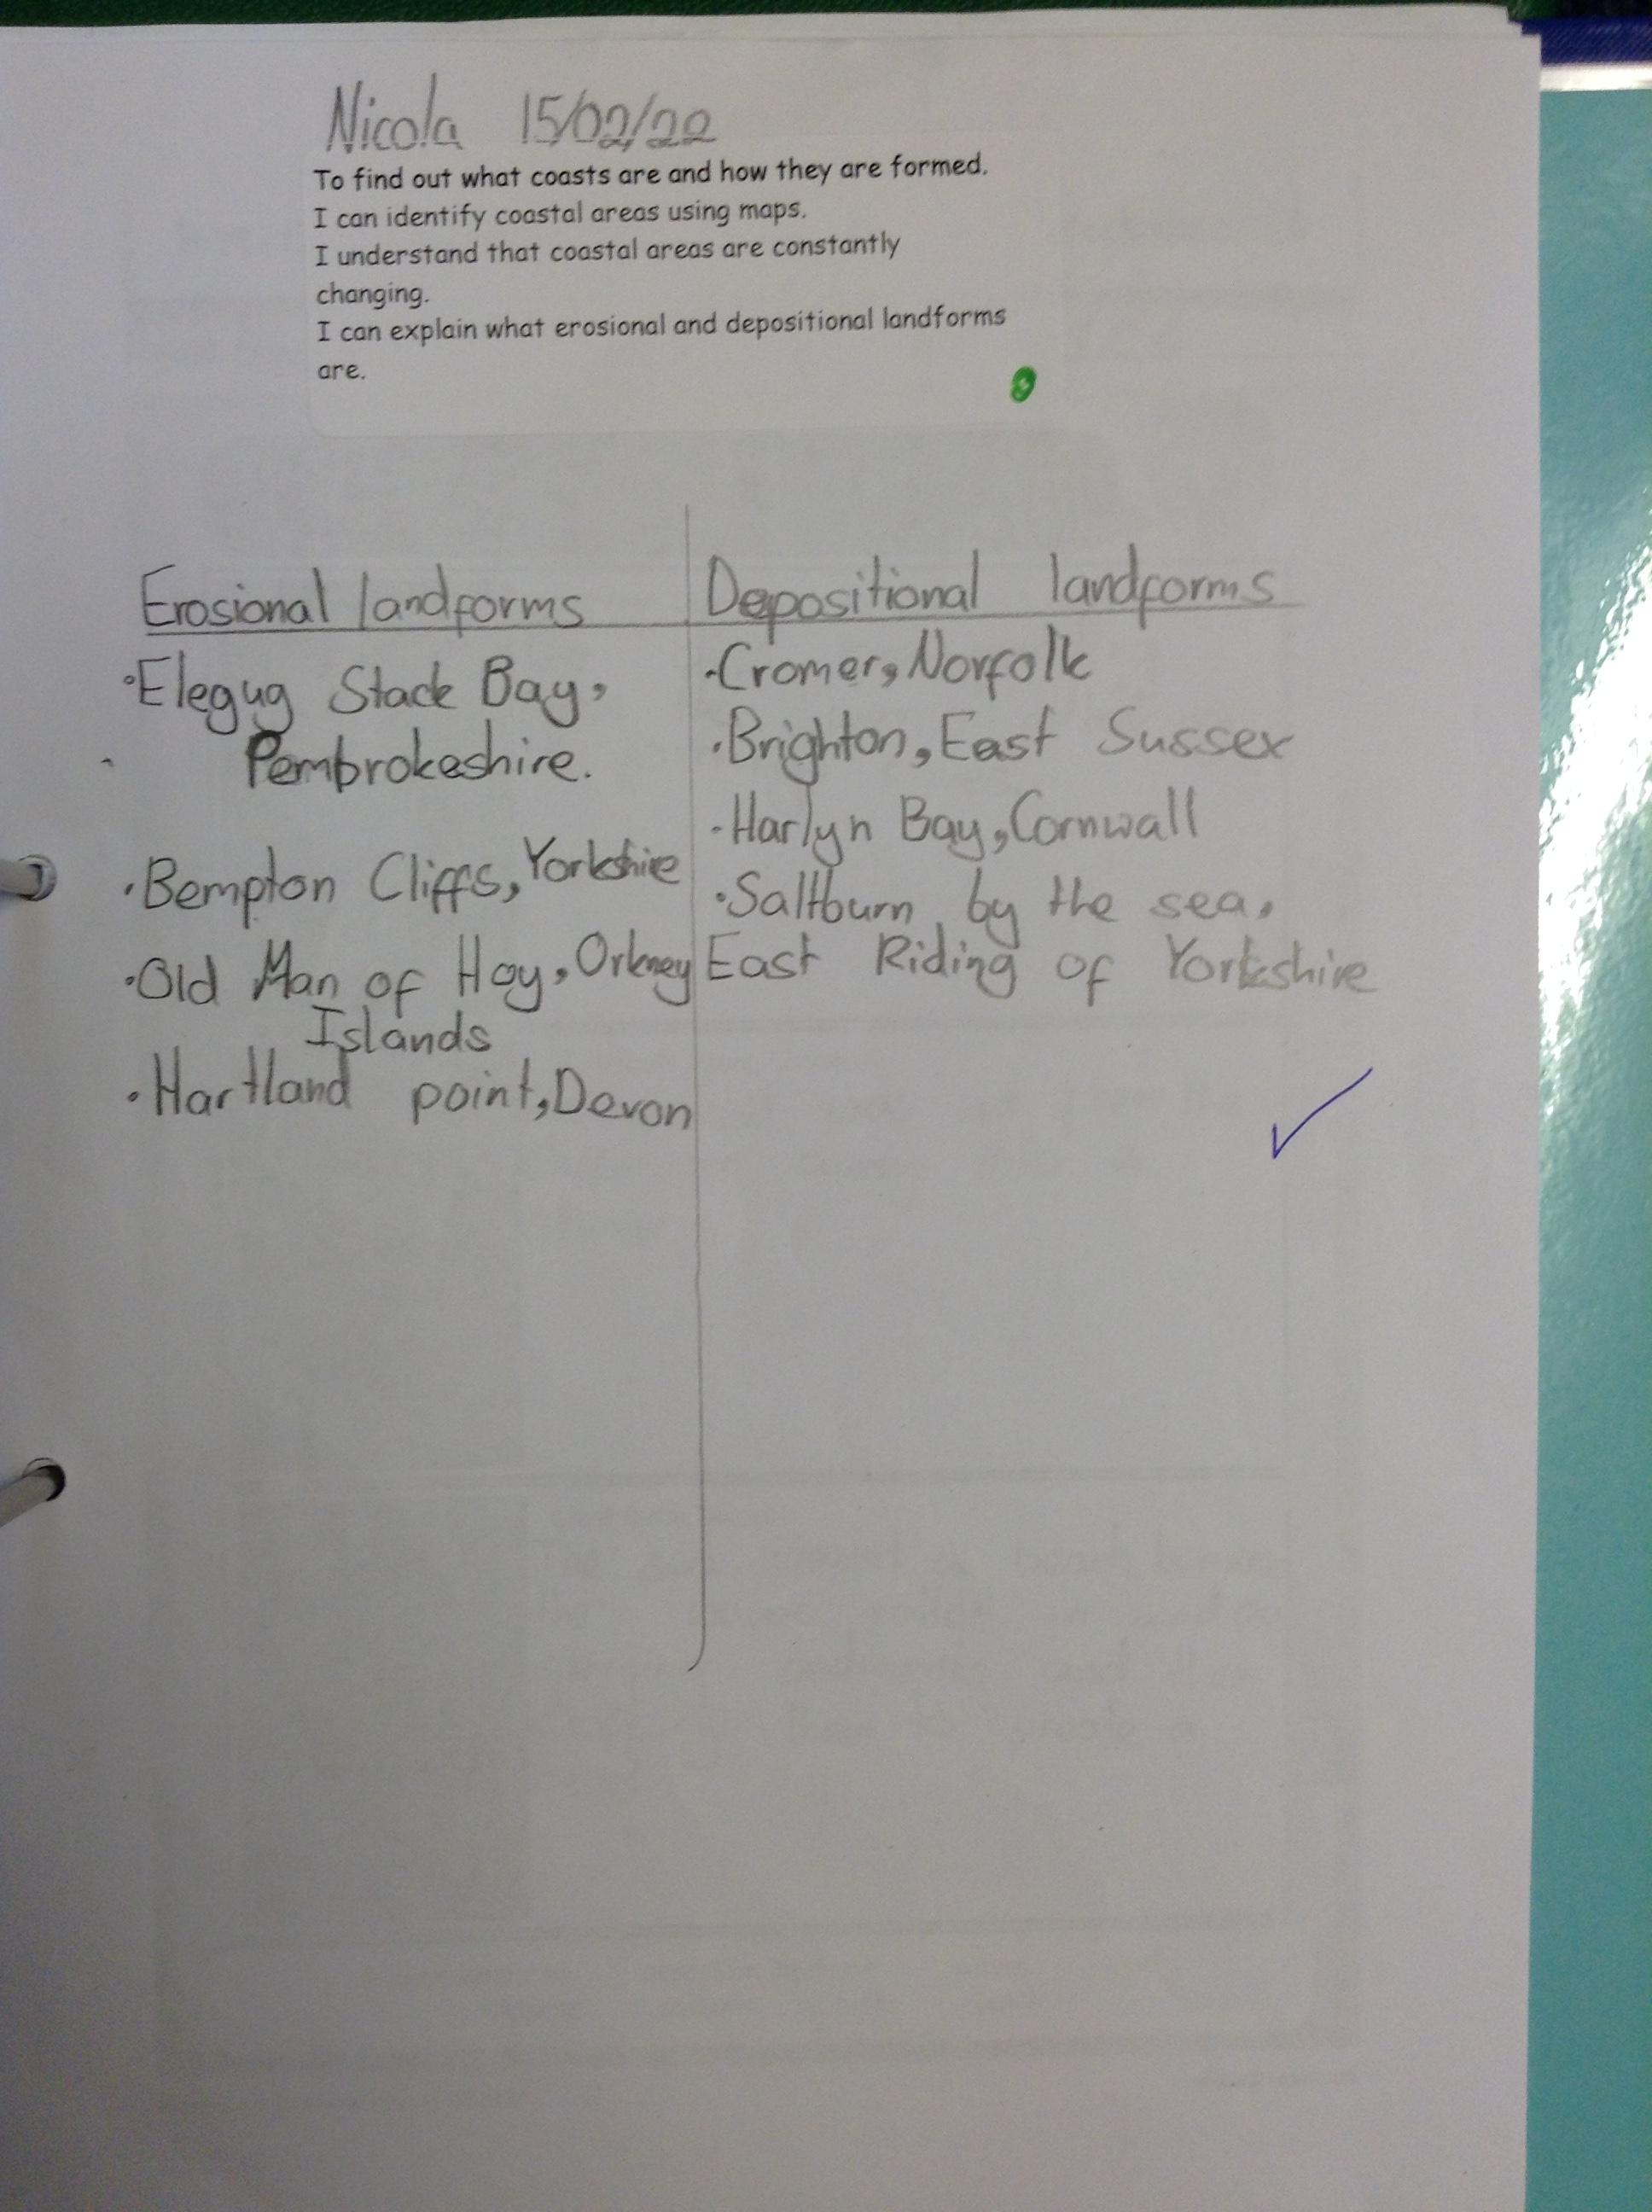 Nicola 15/02/22
To find out what coasts are and how they are formed.
I can identify coastal areas using maps.
I understand that coastal areas are constantly
changing.
I can explain what erosional and depositional landforms
are.
Erosional landforms
·Elegug Stack Bay,
Pembrokeshire.
·Bempton Cliffs, Yorkshire
·Old Man of Hoy, Orkney
Islands
·Hartland point, Devon
Depositional landforms
·Cromer, Norfolk
·Brighton, East Sussex
·Harlyn Bay, Cornwall
·Saltburn by the sea,
East Riding of Yorkshire